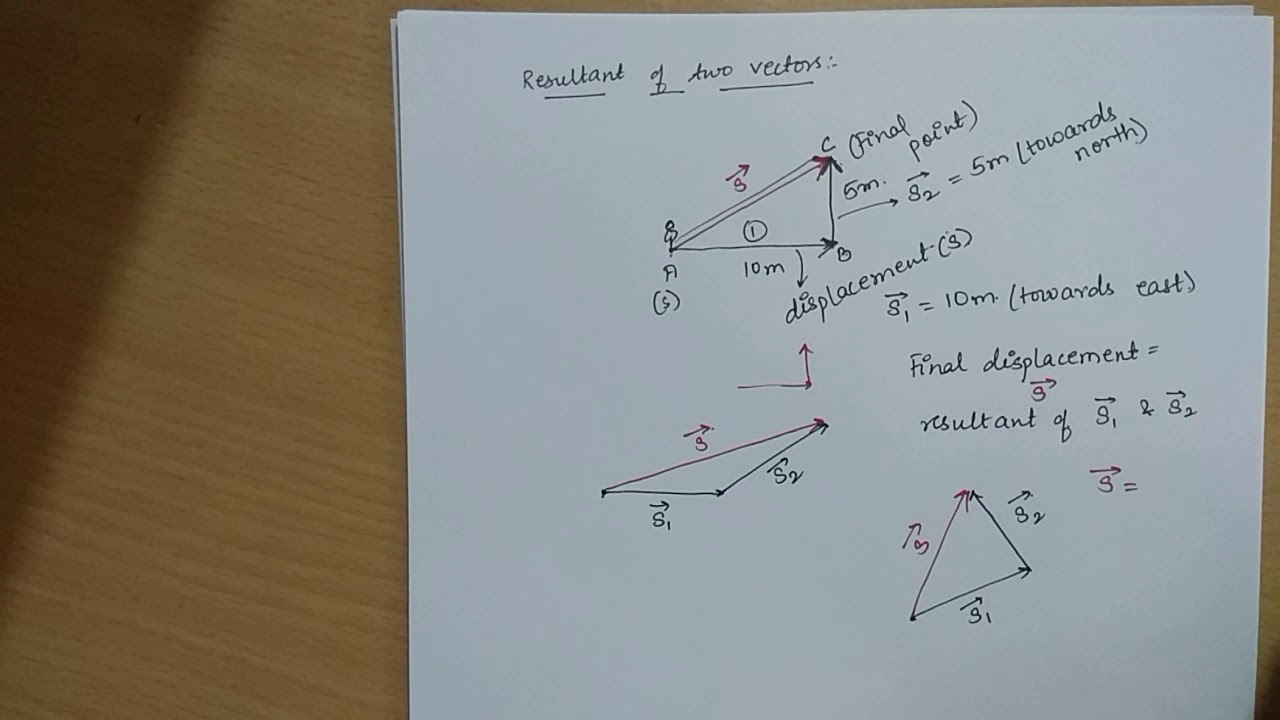 Resultant of two vectors:-
C (Final point)
S⃗
5m. S⃗₂ = 5m (towards north)
①
A
10m
B
(S)
displacement (S)
S⃗₁ = 10m. (towards east)
Final displacement =
S⃗
resultant of S⃗₁ & S⃗₂
S⃗
S⃗₂
S⃗₁
S⃗ =
S⃗₂
S⃗
S⃗₁